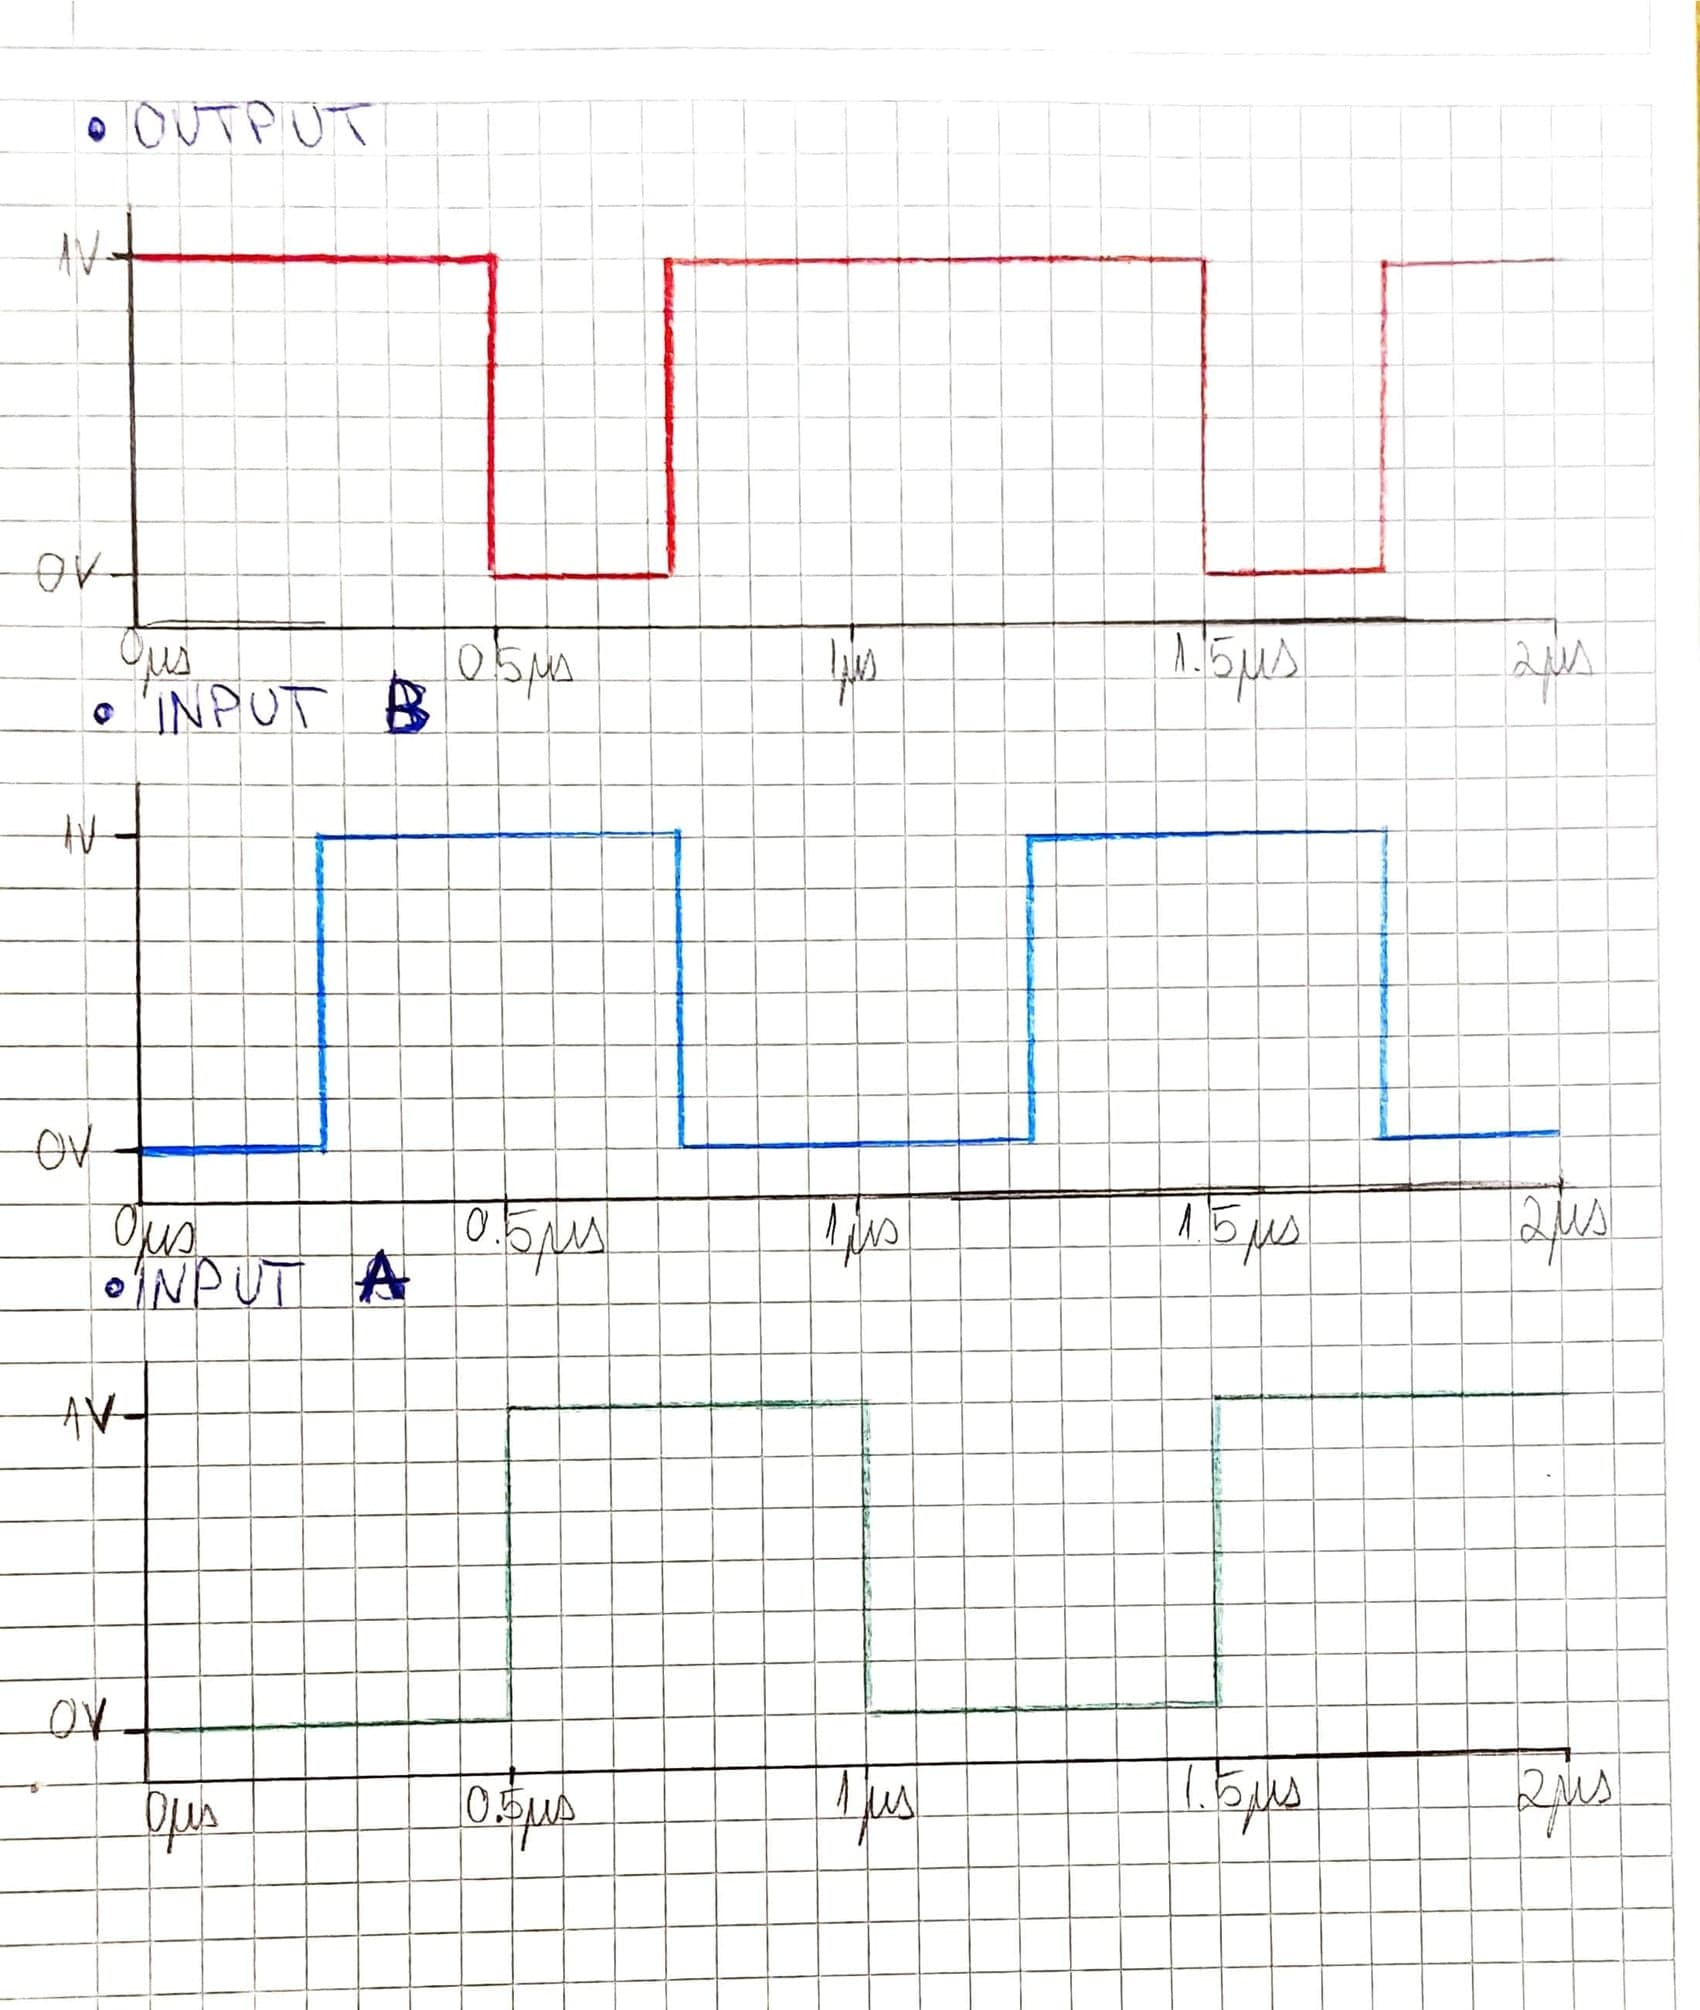 • OUTPUT
1V
0V
0μs 0.5μs 1μs 1.5μs 2μs
• INPUT B
1V
0V
0μs 0.5μs 1μs 1.5μs 2μs
• INPUT A
1V
0V
0μs 0.5μs 1μs 1.5μs 2μs